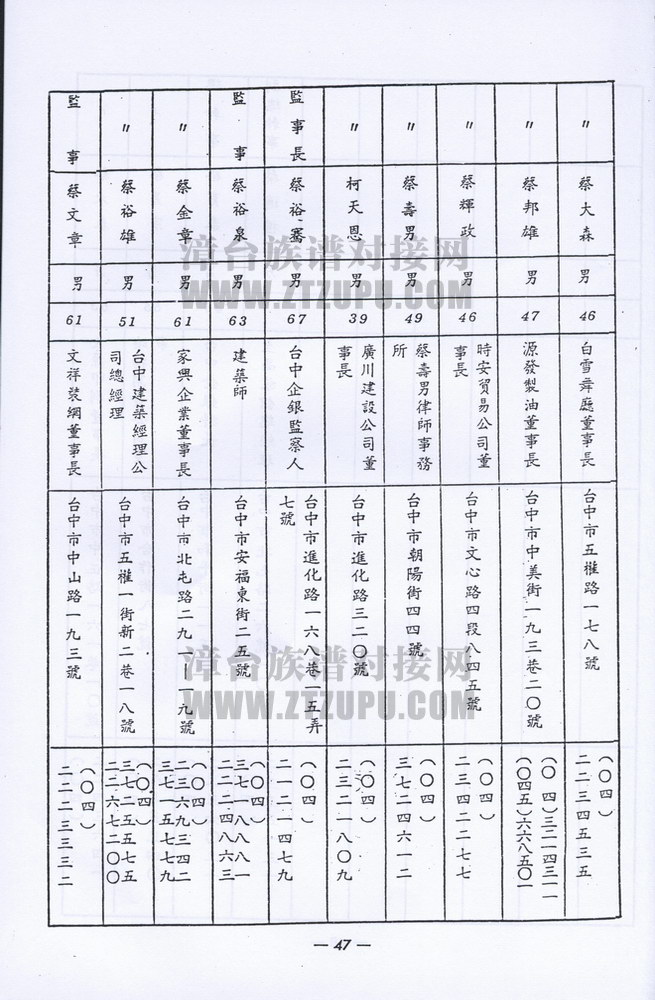 〃
蔡大森
男
46
白雪舞廳董事長
台中市五權路一七八號
(〇四)
二二三四五三五
〃
蔡邦雄
男
47
源發製油董事長
台中市中美街一九三巷二〇號
(〇四)三二一四三一一
(〇四五)六六八五〇一
〃
蔡輝政
男
46
時安貿易公司董
事長
台中市文心路四段八四五號
(〇四)
二三四二二七七
〃
蔡壽男
男
49
蔡壽男律師事務
所
台中市朝陽街四四號
(〇四)
三七二四六一二
〃
柯天恩
男
39
廣川建設公司董
事長
台中市進化路三二〇號
(〇四)
二三二一八〇九
監事長
蔡裕騫
男
67
台中企銀監察人
台中市進化路一六八巷一五弄
七號
(〇四)
二一二一四七九
監事
蔡裕泉
男
63
建築師
台中市安福東街二五號
(〇四)
三七一八八八一
二二二四八六三
〃
蔡金章
男
61
家興企業董事長
台中市北屯路二九一—一九號
(〇四)
二三六九三四二
三七一五七七九
〃
蔡裕雄
男
51
台中建築經理公
司總經理
台中市五權一街新二巷一八號
(〇四)
三七二五五七五
二二六七二〇〇
監事
蔡文章
男
61
文祥裝網董事長
台中市中山路一九三號
(〇四)
二二二三三三二
— 47 —
漳台族谱对接网
WWW.ZTZUPU.COM
漳台族谱对接网
WWW.ZTZUPU.COM